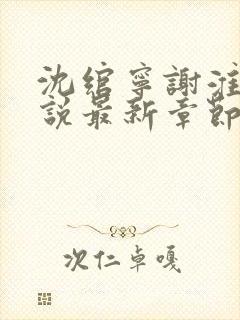 沈綰寧謝淮
說最新章節
次仁卓嘎